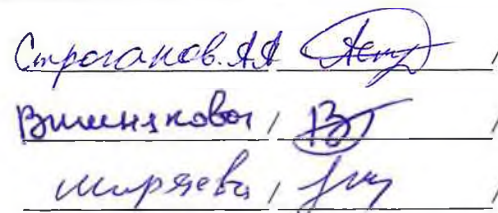 Строганов. АА /
Вишнякова / /
Ширяева / /